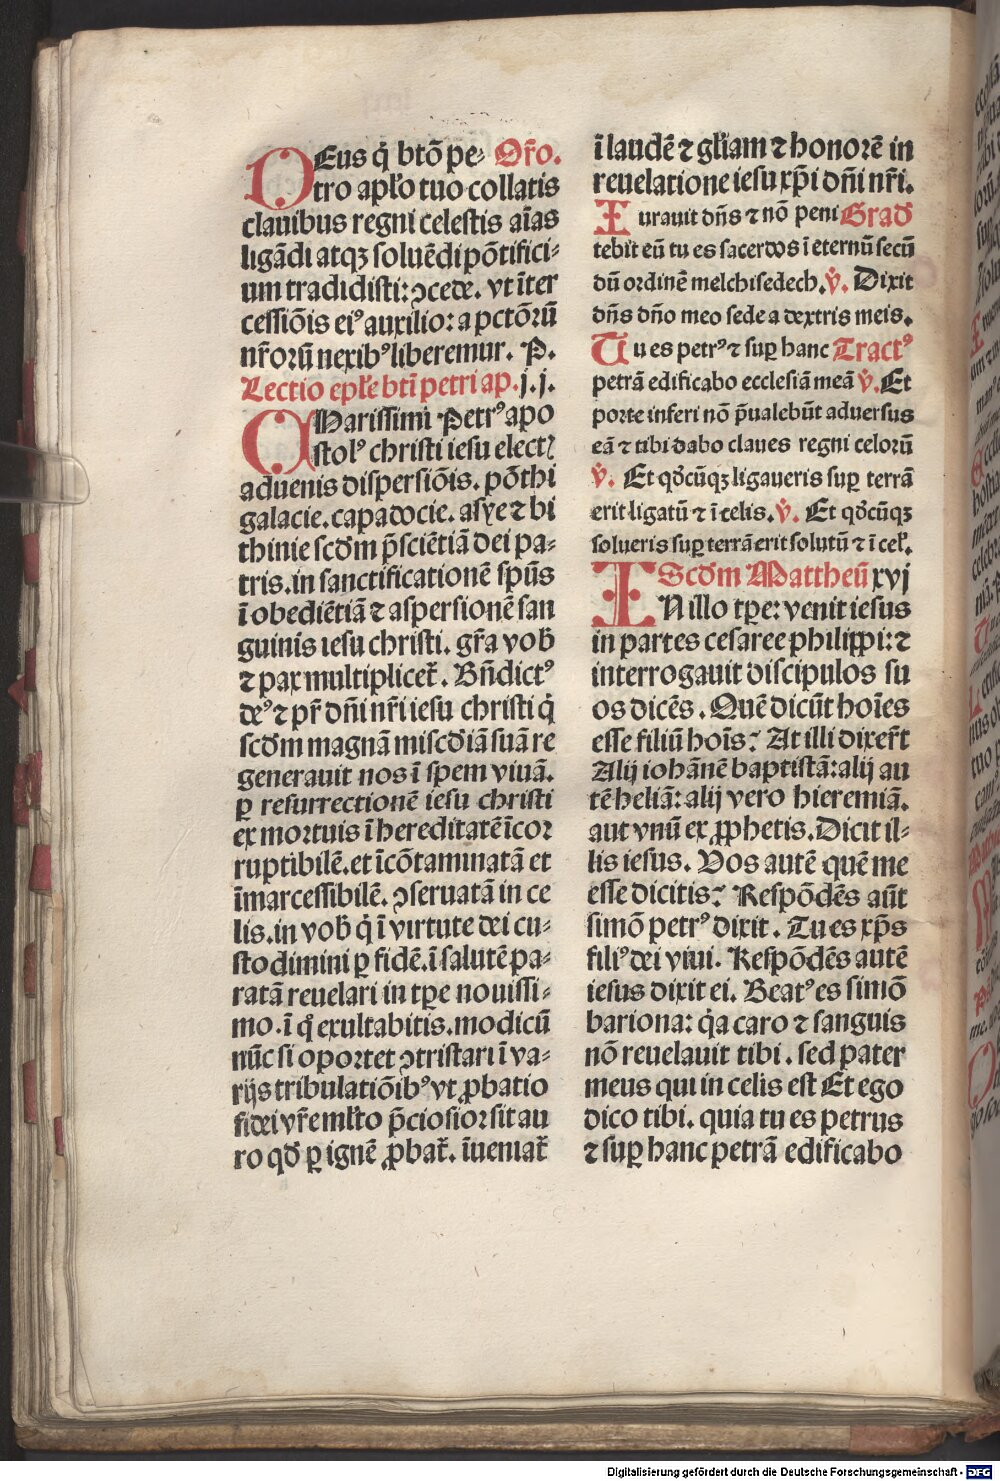 DEus q̇ btō pe⸗ Oro̅.
tro apl̅o tuo collatis
clauibus regni celestis aīas
ligādi atqꝫ soluēdi pōtifici⸗
um tradidisti: ꝯcede. vt īter
cessiōis eiꝰ auxilio: a pctōrū
nr̄orū nexibꝰ liberemur. P.
Lectio epl̅e btī petri ap. j. j.
CHarissimi Petrꝰ apo
stolꝰ christi iesu electꝭ
aduenis dispersiōis. pōthi
galacie. capadocie. asye ⁊ bi
thinie scd̄m p̄sciētiā dei pa⸗
tris. in sanctificationē spūs
ī obediētiā ⁊ aspersionē san
guinis iesu christi. gr̄a vob̄
⁊ pax multiplicet̄. Bn̄dictꝰ
deꝰ ⁊ pr̄ dn̄i nr̄i iesu christi q̇
scd̄m magnā miscd̄iā suā re
generauit nos ī spem viuā.
ꝑ resurrectionē iesu christi
ex mortuis ī hereditatē īcor
ruptibilē. et īcōtaminatā et
īmarcessibilē. ꝯseruatā in ce
lis. in vob̄ q̇ ī virtute dei cu⸗
stodimini ꝑ fidē. ī salutē pa⸗
ratā reuelari in tꝑe nouissi⸗
mo. ī q̊ exultabitis. modicū
nūc si oportet ꝯtristari ī va⸗
rijs tribulatiōibꝰ vt ꝓbatio
fidei vr̄e ml̅to p̄ciosior sit au
ro qd̄ ꝑ ignē ꝓbat̄. īueniat̄
ī laudē ⁊ gl̅iam ⁊ honorē in
reuelatione iesu xp̄i dn̄i nr̄i.
Iurauit dn̄s ⁊ nō peni Grad̄
tebit eū tu es sacerdos ī eternū secū
dū ordinē melchisedech. v̇. Dixit
dn̄s dn̄o meo sede a dextris meis.
Tu es petrꝰ ⁊ suꝑ hanc Tractꝰ
petrā edificabo ecclesiā meā v̇. Et
porte inferi nō p̄ualebūt aduersus
eā ⁊ tibi dabo claues regni celorū
v̇. Et qd̄cūqꝫ ligaueris suꝑ terrā
erit ligatū ⁊ ī celis. v̇. Et qd̄cūqꝫ
solueris suꝑ terrā erit solutū ⁊ ī cel̅.
Scd̄m Mattheū xvj
IN illo tꝑe: venit iesus
in partes cesaree philippi: ⁊
interrogauit discipulos su
os dicēs. Quē dicūt hoīes
esse filiū hoīs? At illi dixer̄t
Alij iohānē baptistā: alij au
tē heliā: alij vero hieremiā.
aut vnū ex ꝓphetis. Dicit il⸗
lis iesus. Vos autē quē me
esse dicitis? Respōdēs aūt
simō petrꝰ dixit. Tu es xp̄s
filiꝰ dei viui. Respōdēs autē
iesus dixit ei. Beatꝰ es simō
bariona: q̇a caro ⁊ sanguis
nō reuelauit tibi. sed pater
meus qui in celis est Et ego
dico tibi. quia tu es petrus
⁊ suꝑ hanc petrā edificabo
Digitalisierung gefördert durch die Deutsche Forschungsgemeinschaft - DFG